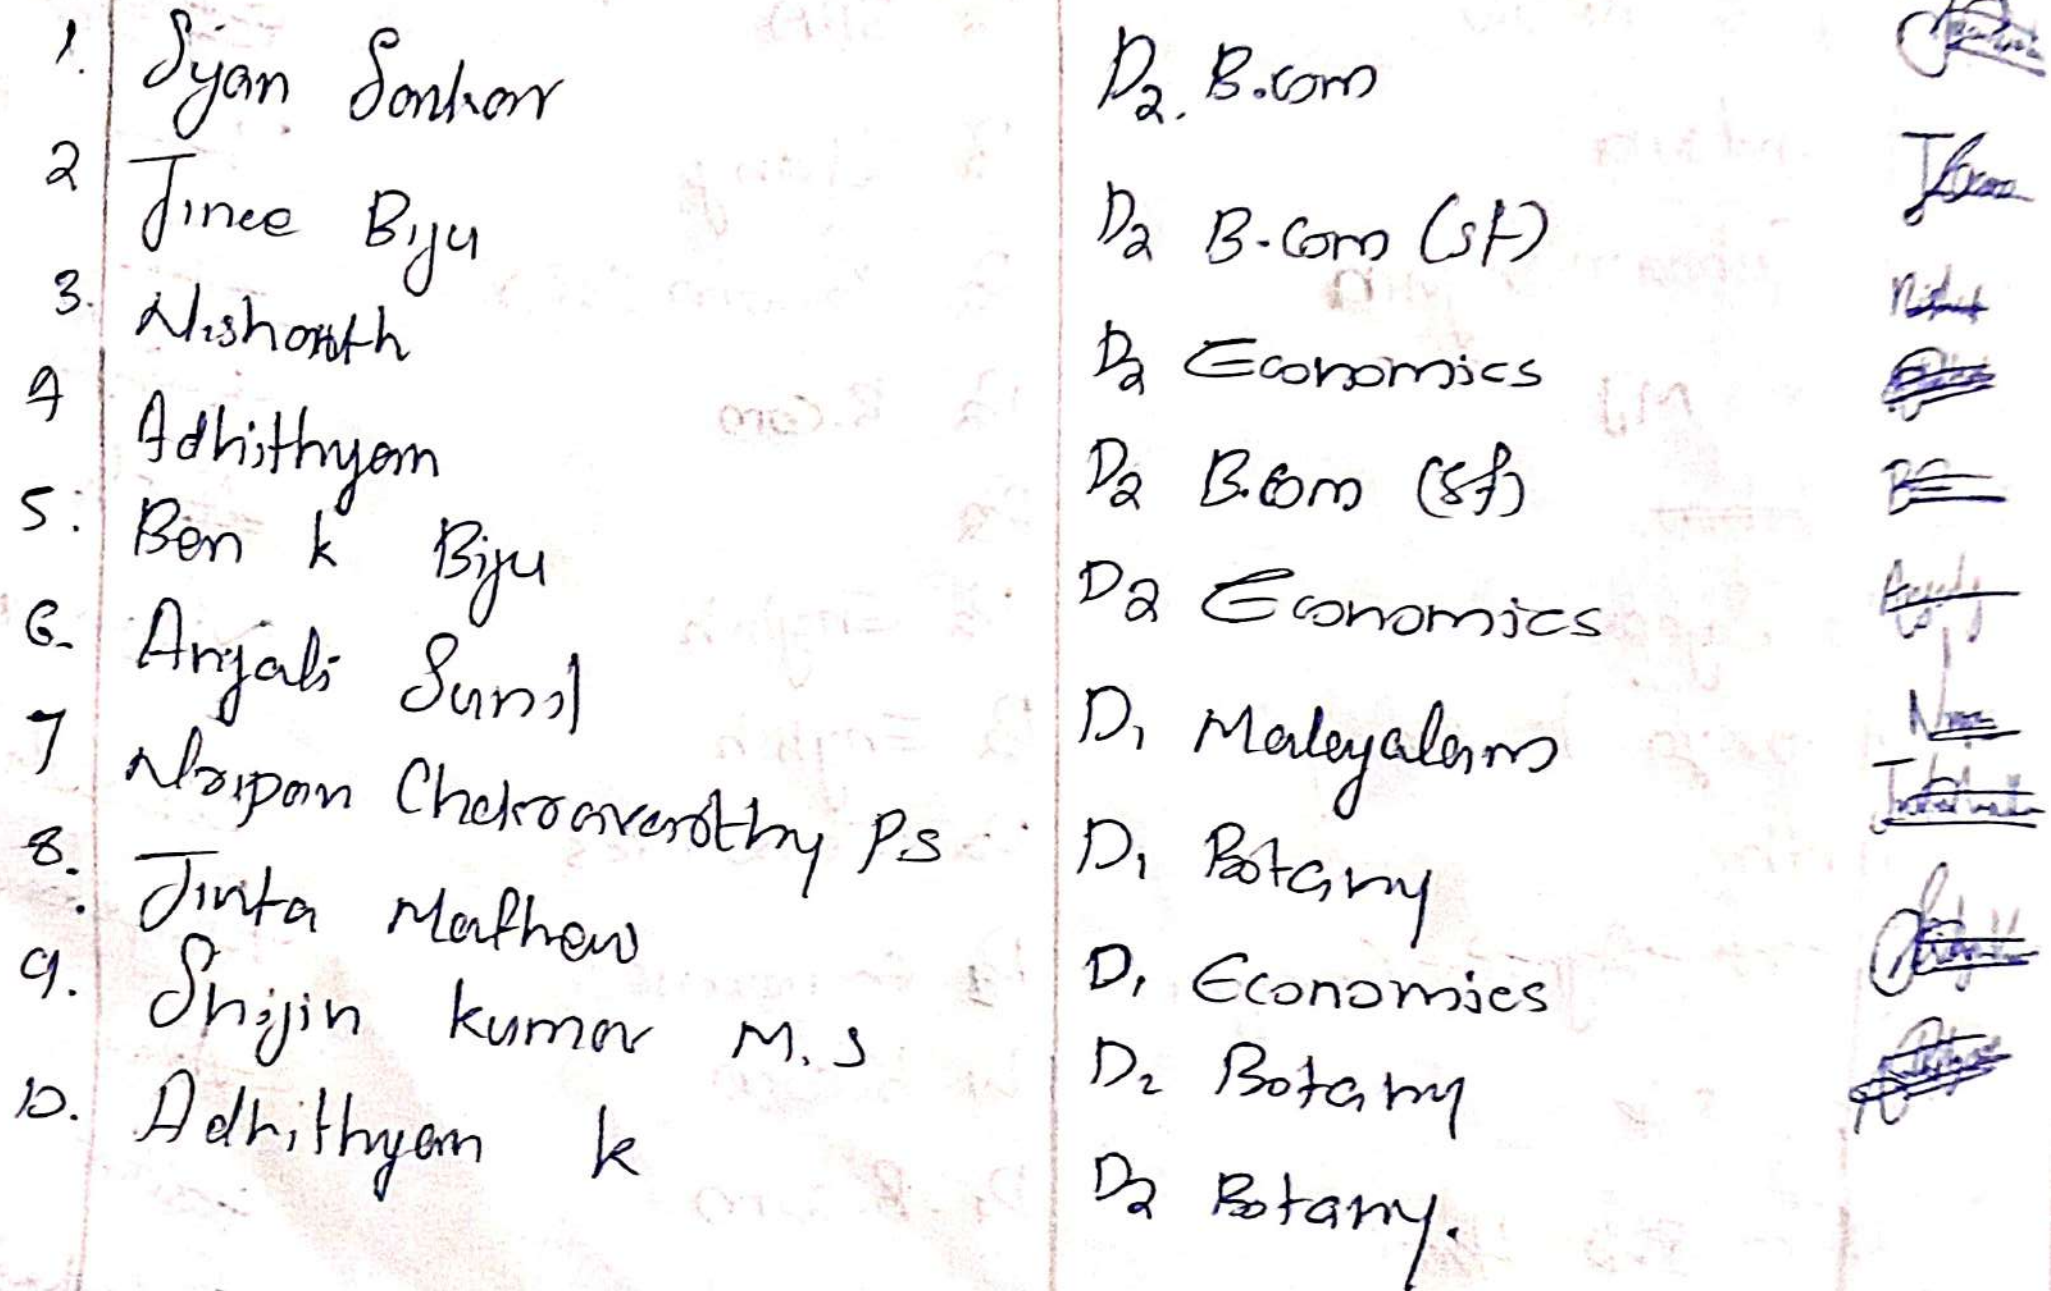 1. Syan Sankar D2. B.com
2 Jince Biju D2 B.Com (sf)
3. Nishanth D2 Economics
4 Adhithyan D2 B.Com (sf)
5. Ben k Biju D2 Economics
6. Anjali Sunil D1 Malayalam
7 Nripan Chakravarthy P.S D1 Botany
8. Jinta Mathew D1 Economics
9. Shijin kumar M.S D2 Botany
10. Adhithyan k D2 Botany.